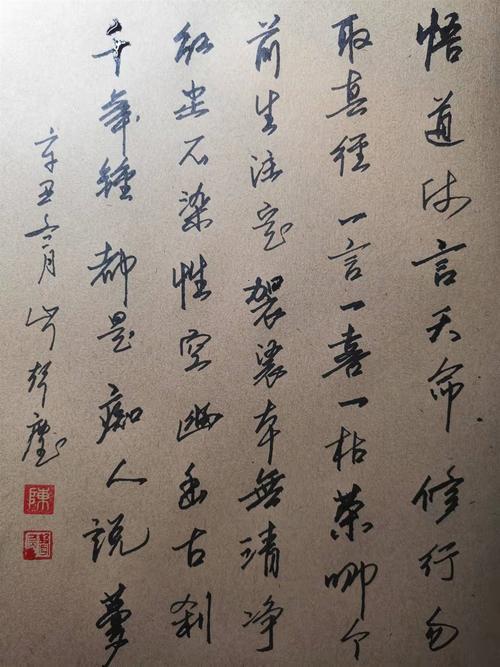 悟道休言天命修行勿
取真经一言一喜一枯荣哪个
前生注定袈裟本無清净
红尘不染性空幽幽古刹
千年鍾都是痴人說夢
辛丑六月
陳